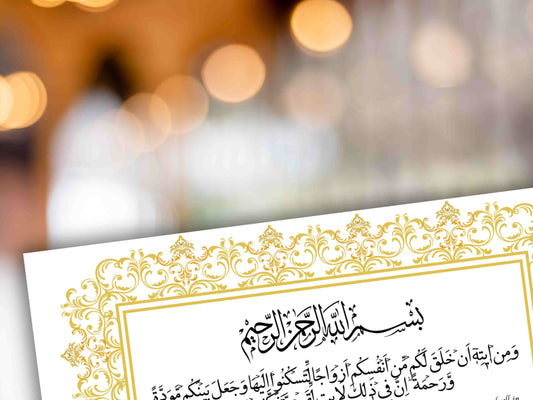 بسم الله الرحمن الرحيم
وَمِنْ اٰيٰتِهٖٓ اَنْ خَلَقَ لَكُمْ مِّنْ اَنْفُسِكُمْ اَزْوَاجًا لِّتَسْكُنُوْٓا اِلَيْهَا وَجَعَلَ بَيْنَكُمْ مَّوَدَّةً
وَّرَحْمَةً ؕ اِنَّ فِيْ ذٰلِكَ